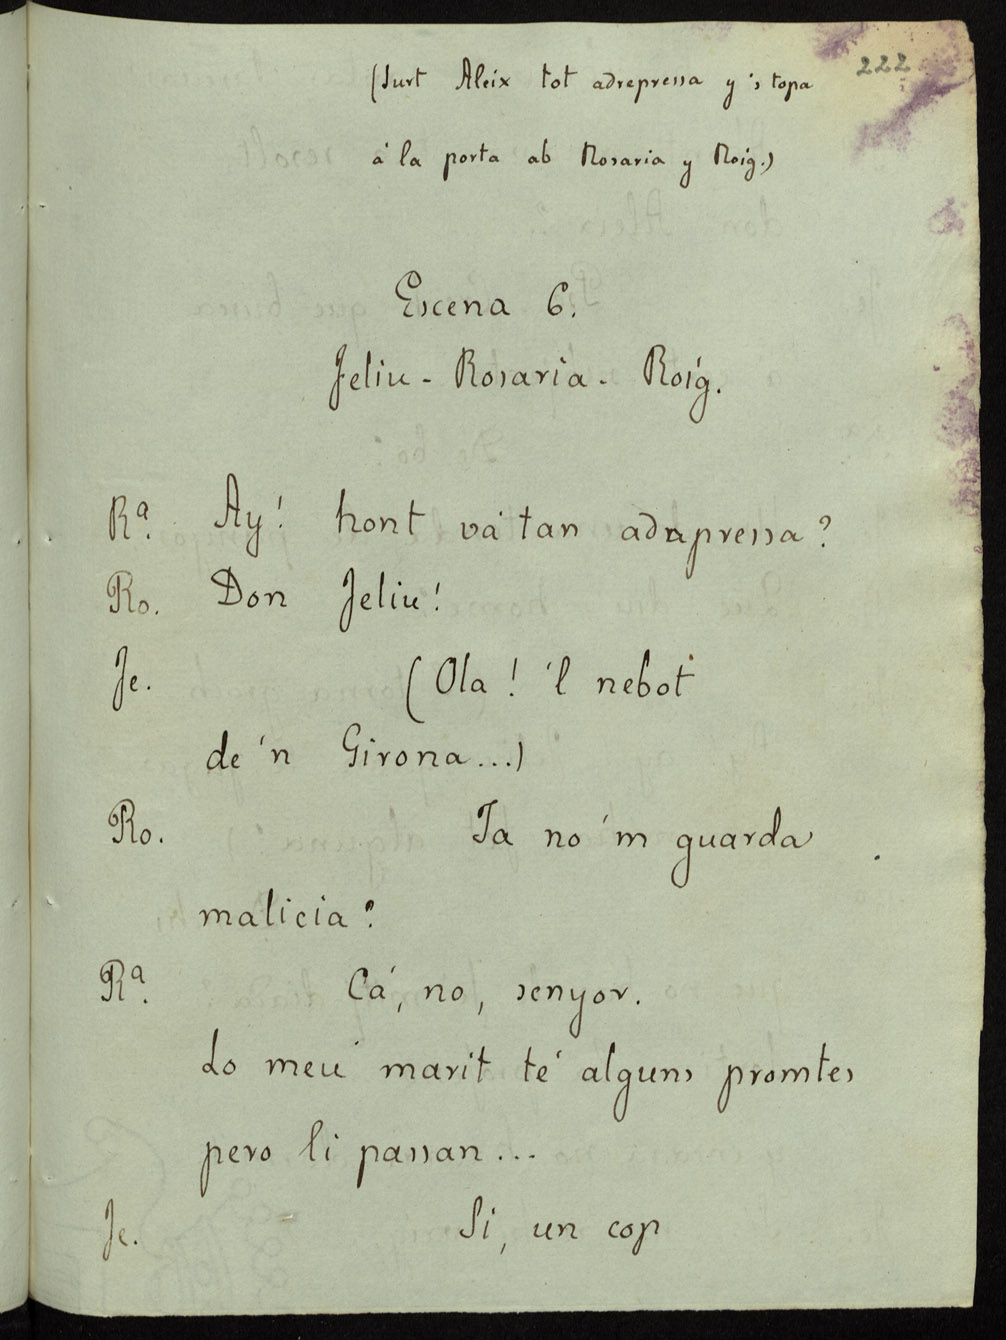 222
(Surt Aleix tot adrepressa y 's topa
á la porta ab Rosaria y Roig.)
Escena 6.
Feliu - Rosaria - Roig.
Rª. Ay! hont vá tan adrapressa?
Ro. Don Feliu!
Fe. (Ola! 'l nebot
de 'n Girona...)
Ro. Ja no 'm guarda
malicia?
Rª. Cá, no, senyor.
Lo meu marit té alguns promtes
pero li passan...
Fe. Si, un cop